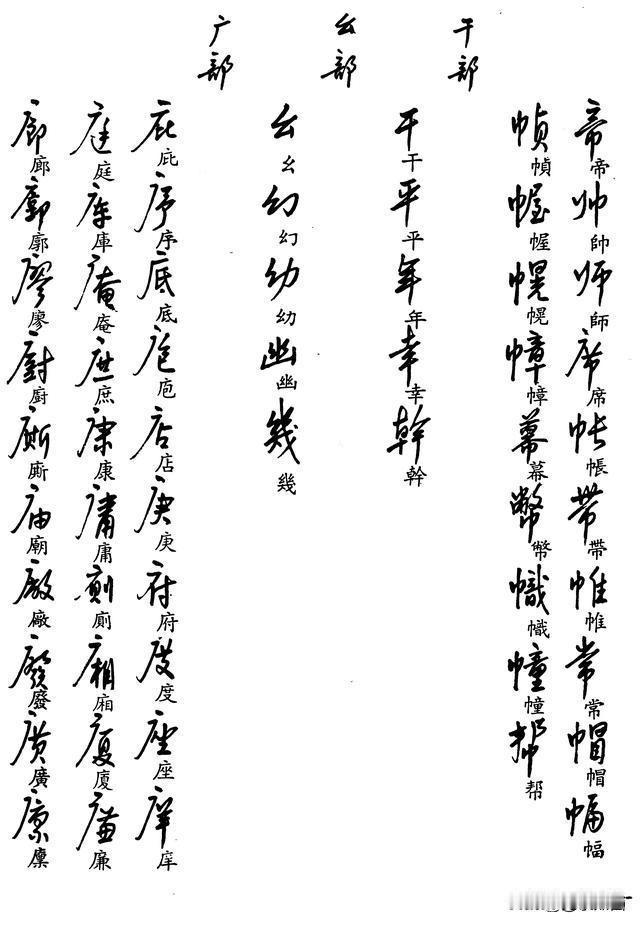 帝帝帅帥师師席席帐帳帶帶帷帷常常帽帽幅幅
幀幀幄幄幌幌幛幛幕幕幣幣幟幟幢幢帮帮
干部
干干平平年年幸幸幹幹
幺部
幺幺幻幻幼幼幽幽幾幾
广部
庇庇序序底底庖庖店店庚庚府府度度座座庠庠
庭庭库庫庵庵庶庶康康庸庸廁廁廂廂廈廈廉廉
廊廊廓廓廖廖廚廚廝廝庙廟廠廠廢廢廣廣廩廩